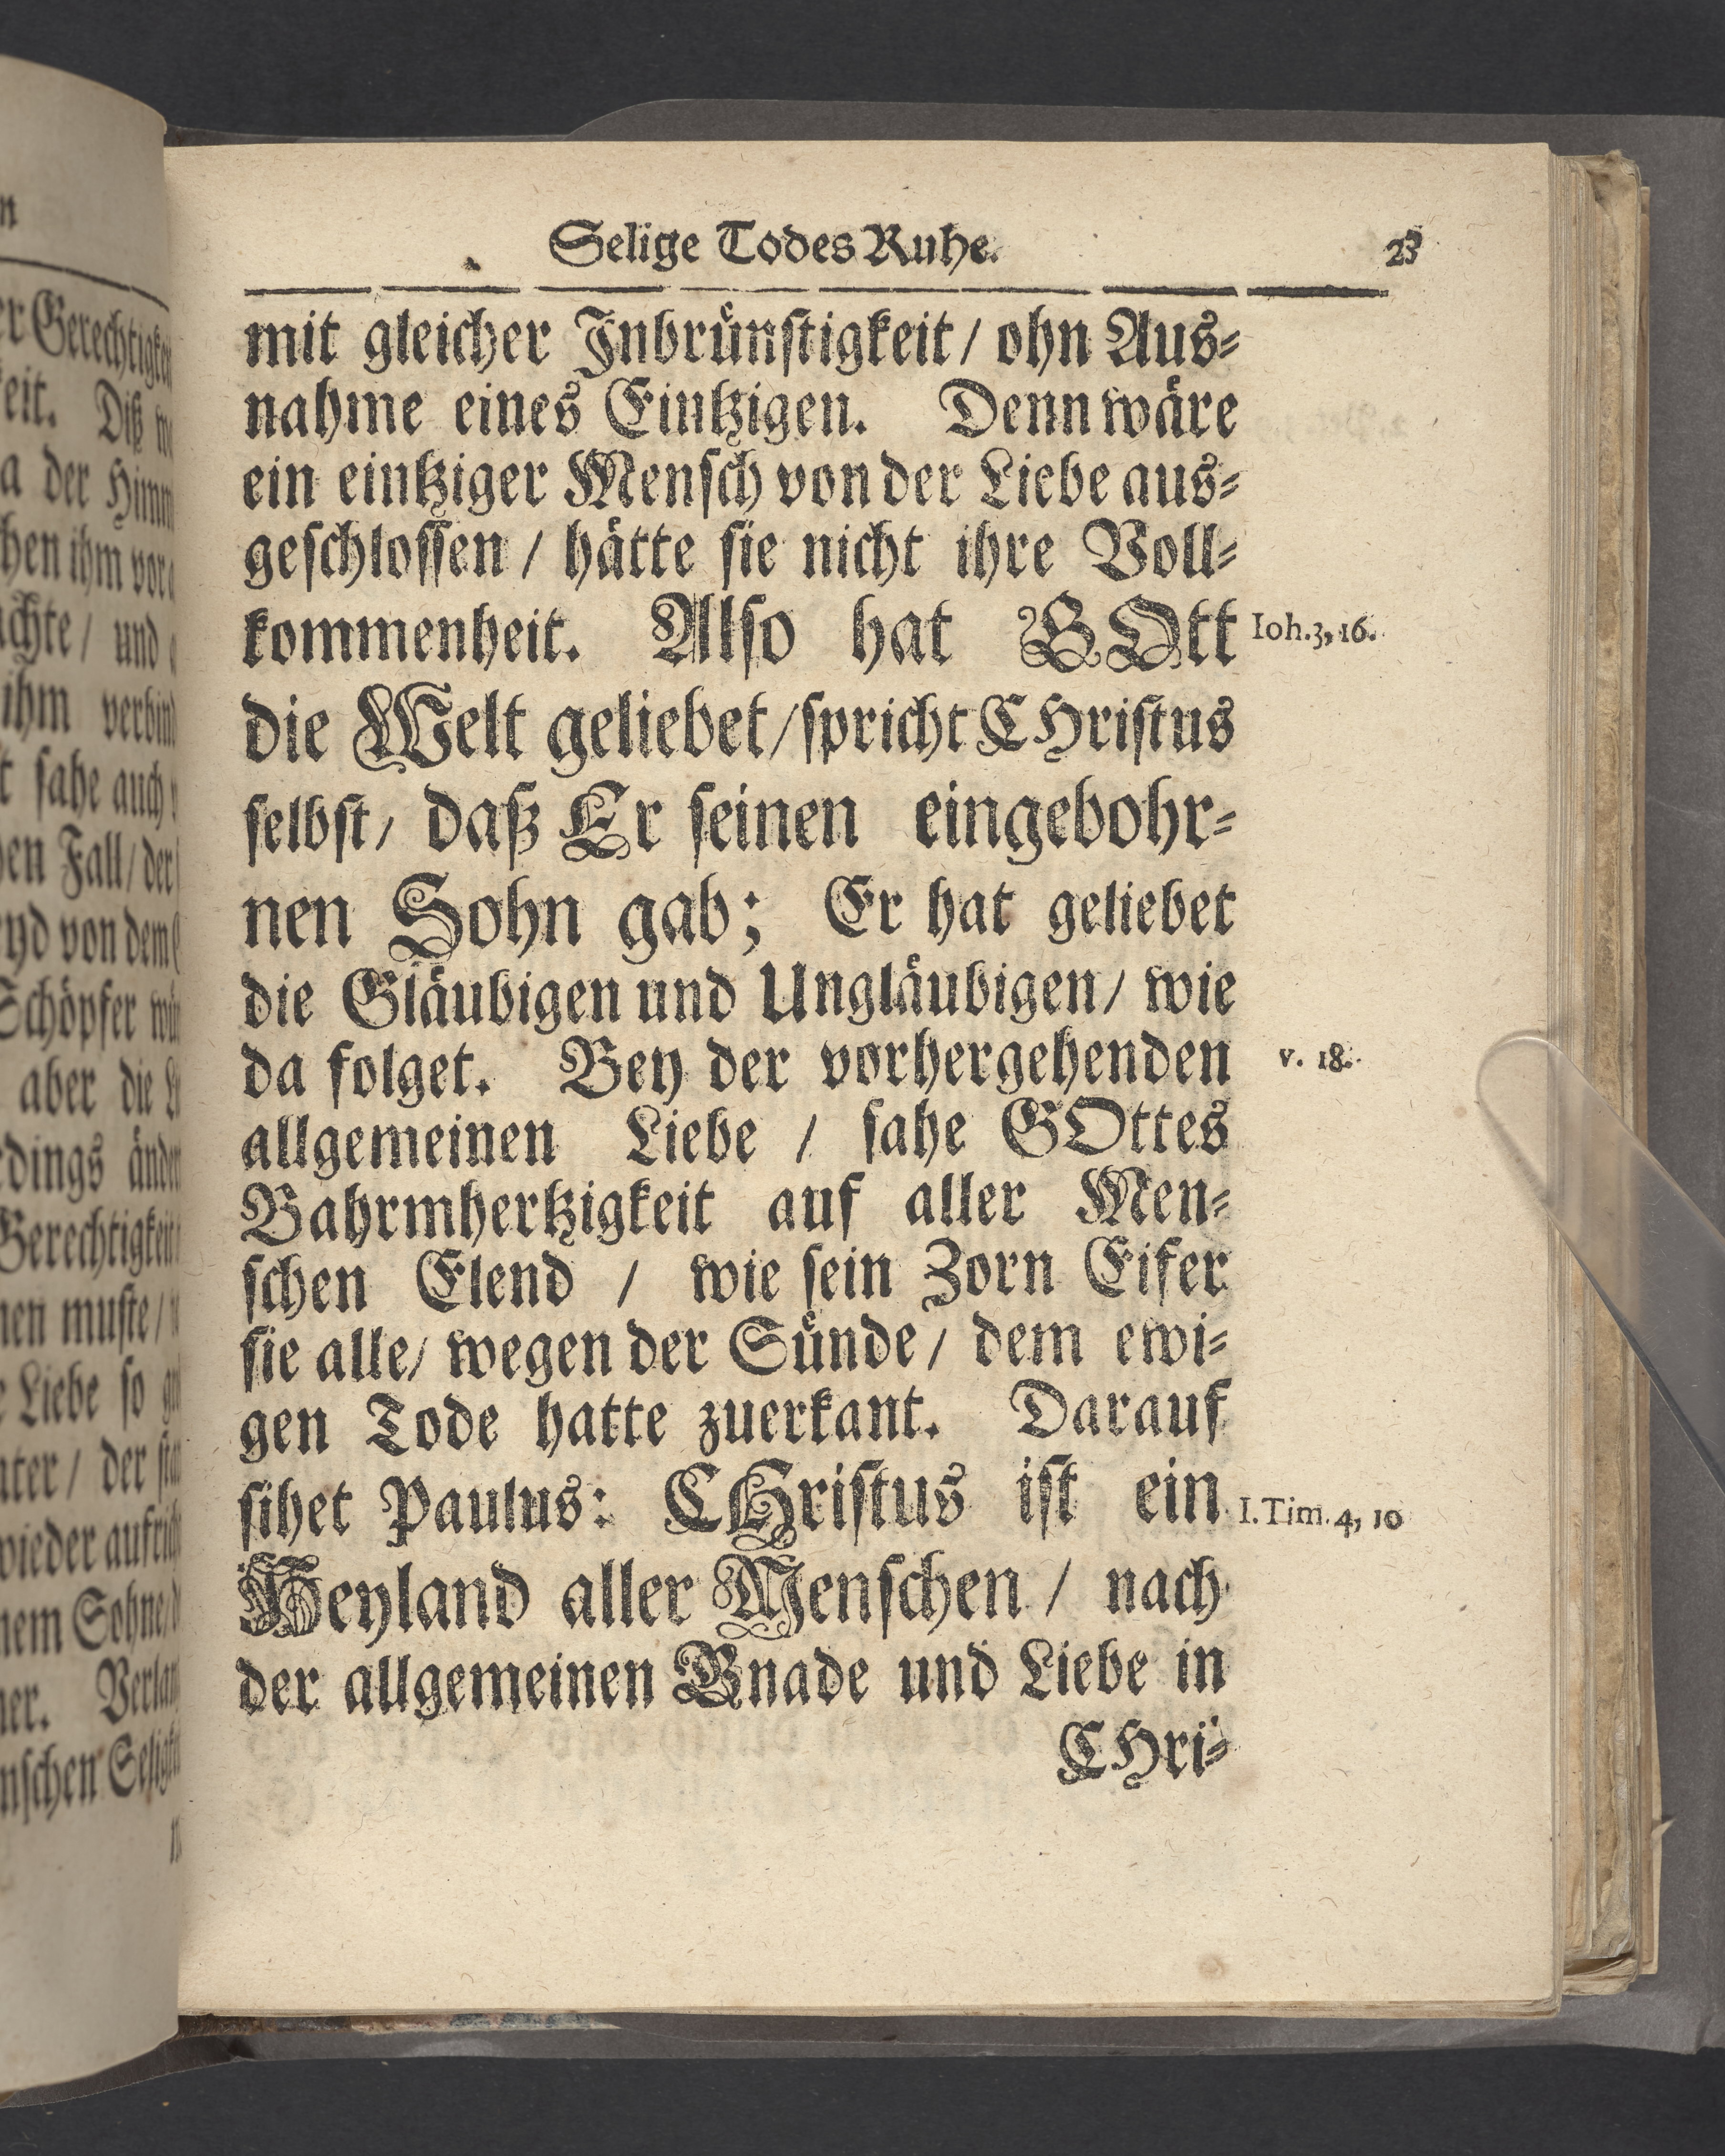 Selige Todes Ruhe. 23
mit gleicher Jnbrünſtigkeit / ohn Aus⸗
nahme eines Eintzigen. Denn wäre
ein eintziger Menſch von der Liebe aus⸗
geſchloſſen / hätte ſie nicht ihre Voll⸗
kommenheit. Alſo hat GOtt Ioh.3,16.
die Welt geliebet / ſpricht CHriſtus
ſelbſt / daß Er ſeinen eingebohr⸗
nen Sohn gab; Er hat geliebet
die Gläubigen und Ungläubigen / wie
da folget. Bey der vorhergehenden v. 18.
allgemeinen Liebe / ſahe GOttes
Bahrmhertzigkeit auf aller Men⸗
ſchen Elend / wie ſein Zorn Eifer
ſie alle / wegen der Sünde / dem ewi⸗
gen Tode hatte zuerkant. Darauf
ſihet Paulus: CHriſtus iſt ein I. Tim. 4, 10
Heyland aller Menſchen / nach
der allgemeinen Gnade und Liebe in
CHri⸗